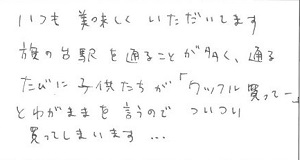 いつも 美味しく いただいてます
旗の台駅を通ることが多く、通る
たびに子供たちが「ワッフル買ってー」
とわがままを言うので ついつい
買ってしまいます…